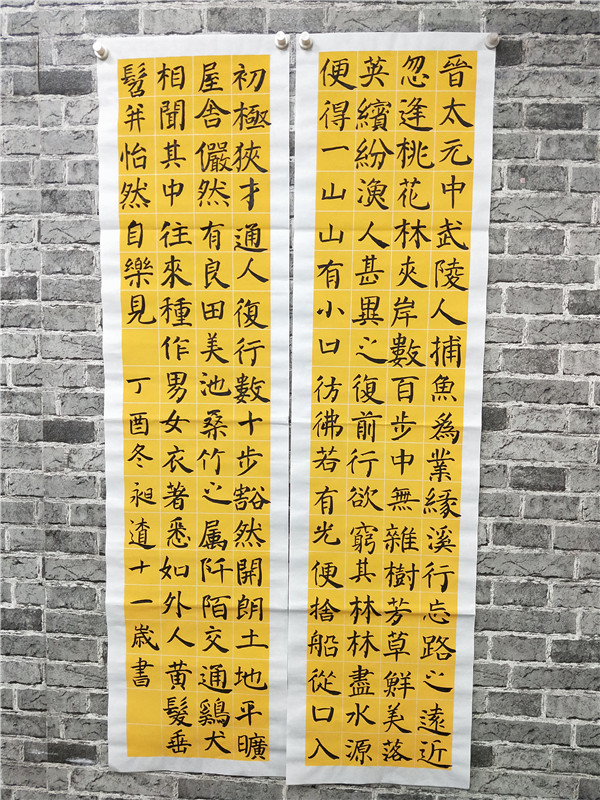 晉太元中武陵人捕魚爲業緣溪行忘路之遠近
忽逢桃花林夾岸數百步中無雜樹芳草鮮美落
英繽紛漁人甚異之復前行欲窮其林林盡水源
便得一山山有小口彷彿若有光便捨船從口入
初極狹才通人復行數十步豁然開朗土地平曠
屋舍儼然有良田美池桑竹之属阡陌交通鷄犬
相聞其中往來種作男女衣著悉如外人黄髮垂
髫并怡然自樂見 丁酉冬昶十一歲書